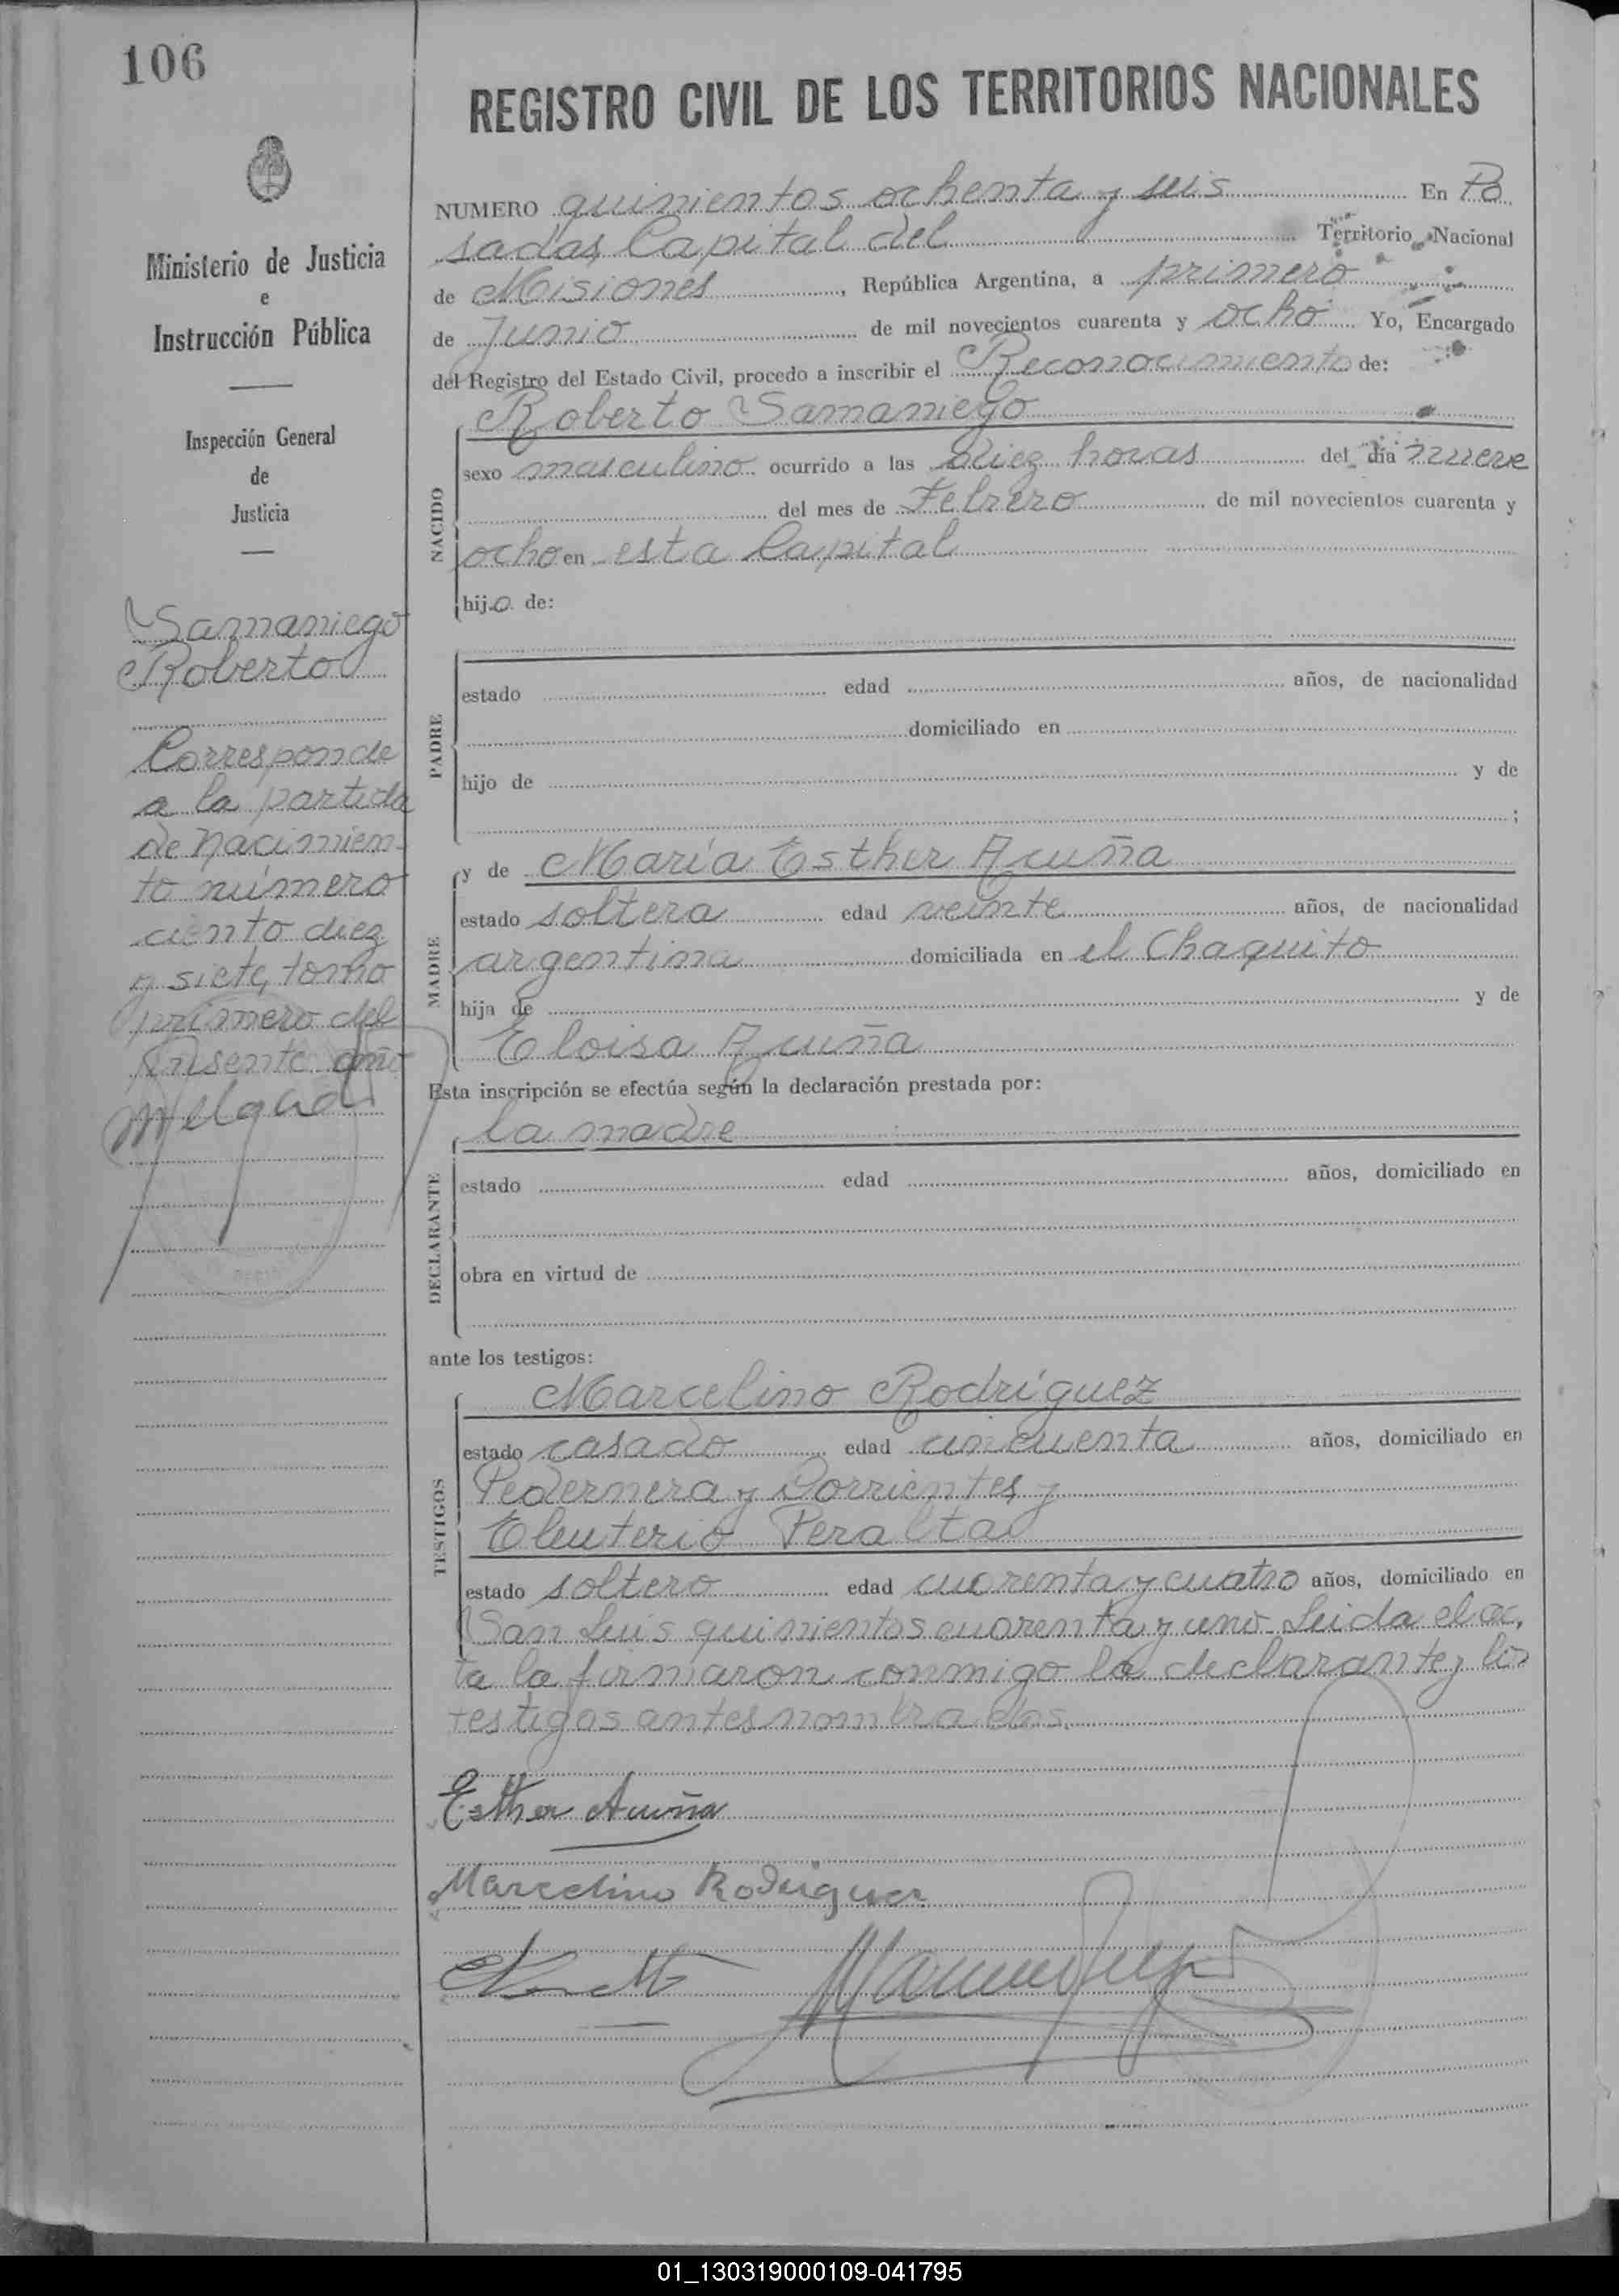 106
REGISTRO CIVIL DE LOS TERRITORIOS NACIONALES
Ministerio de Justicia
e
Instrucción Pública
Inspección General
de
Justicia
Samaniego
Roberto
Corresponde
a la partida
de nacimien-
to número
ciento diez
y siete, tomo
primero del
presente año
NUMERO quinientos ochenta y seis En Po
sadas, Capital del Territorio Nacional
de Misiones, República Argentina, a primero
de Junio de mil novecientos cuarenta y ocho Yo, Encargado
del Registro del Estado Civil, procedo a inscribir el Reconocimiento de:
Roberto Samaniego
NACIDO
sexo masculino ocurrido a las diez horas del día nueve
del mes de Febrero de mil novecientos cuarenta y
ocho en esta Capital
hijo de:
PADRE
estado edad años, de nacionalidad
domiciliado en
hijo de y de
;
y de María Esther Acuña
MADRE
estado soltera edad veinte años, de nacionalidad
argentina domiciliada en el Chaquito
hija de y de
Eloisa Acuña
Esta inscripción se efectúa según la declaración prestada por:
la madre
DECLARANTE
estado edad años, domiciliado en
obra en virtud de
ante los testigos:
Marcelino Rodríguez
TESTIGOS
estado casado edad cincuenta años, domiciliado en
Pedernera y Corrientes y
Eleuterio Peralta
estado soltero edad cuarenta y cuatro años, domiciliado en
San Luis quinientos cuarenta y uno Leida el ac,
ta la firmaron conmigo la declarante y los
testigos antes nombrados.
Esther Acuña
Marcelino Rodriguez
01_130319000109-041795